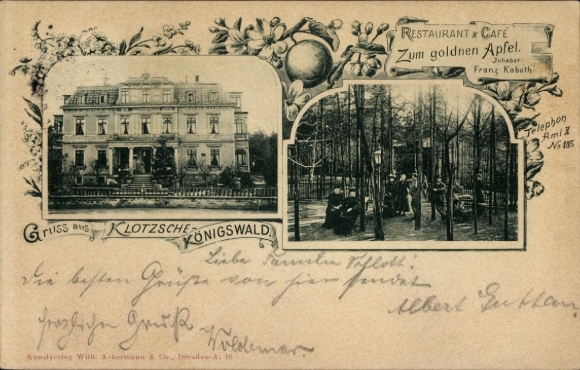 RESTAURANT & CAFÉ
Zum goldnen Apfel.
Inhaber:
Franz Kaboth.
Telephon
Amt II
No 185.
Gruss aus KLOTZSCHE-KÖNIGSWALD.
Liebe Familie
Die besten Grüße von hier sendet
Albert
herzlichen Gruß
Woldemar.
Kunstverlag Wilh. Ackermann & Co., Dresden-A. 16